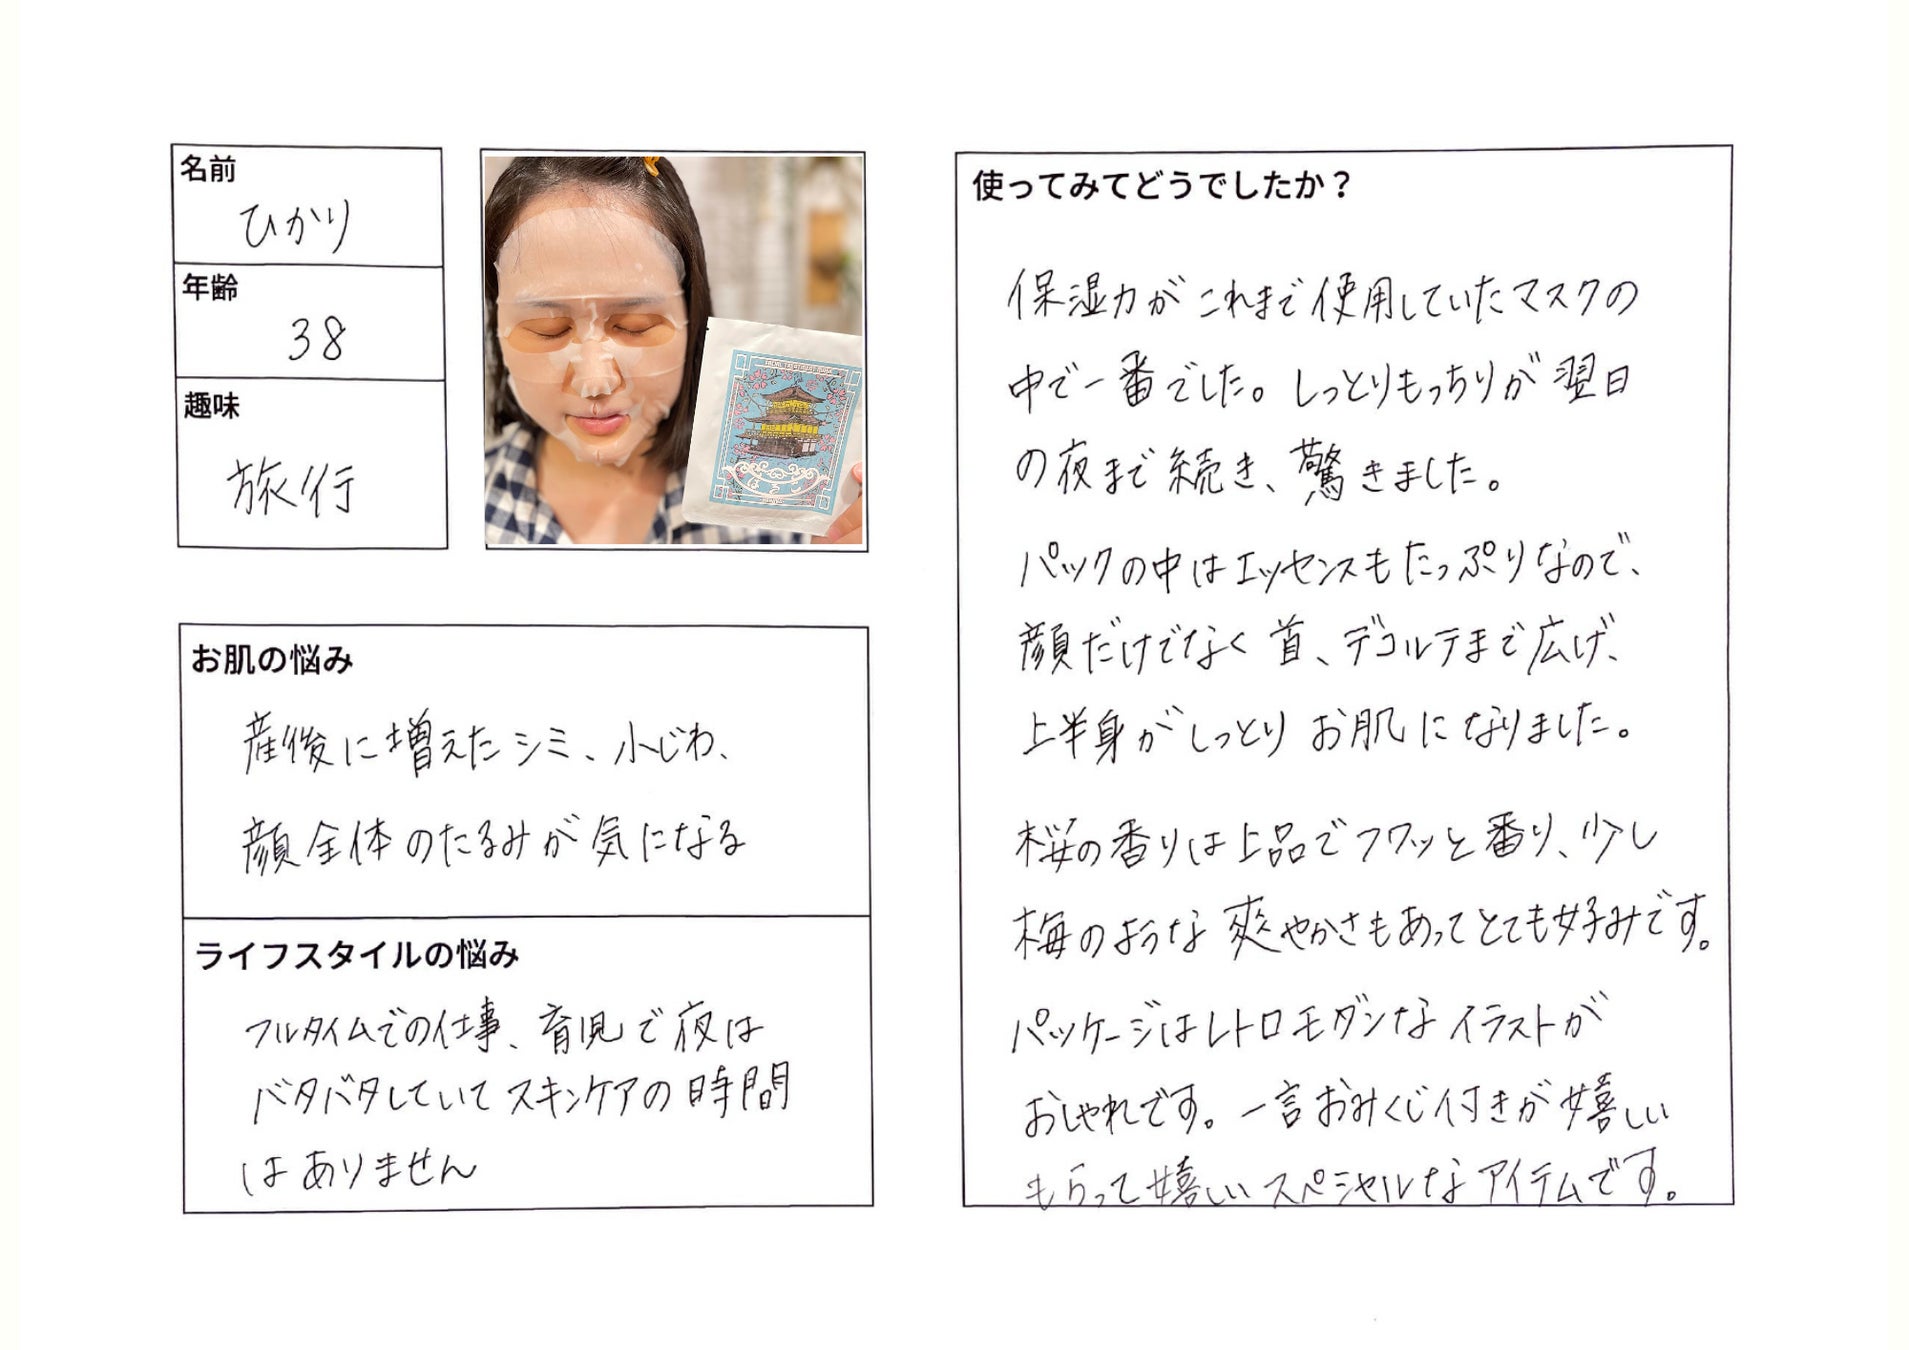 名前
ひかり
年齢
38
趣味
旅行
お肌の悩み
産後に増えたシミ、小じわ、
顔全体のたるみが気になる
ライフスタイルの悩み
フルタイムでの仕事、育児で夜は
バタバタしていてスキンケアの時間
はありません
使ってみてどうでしたか？
保湿力がこれまで使用していたマスクの
中で一番でした。しっとりもっちりが翌日
の夜まで続き、驚きました。
パックの中はエッセンスもたっぷりなので、
顔だけでなく首、デコルテまで広げ、
上半身がしっとりお肌になりました。
桜の香りは上品でフワッと番り、少し
梅のような爽やかさもあってとても好みです。
パッケージはレトロモダンなイラストが
おしゃれです。一言おみくじ付きが嬉しい
もらって嬉しいスペシャルなアイテムです。